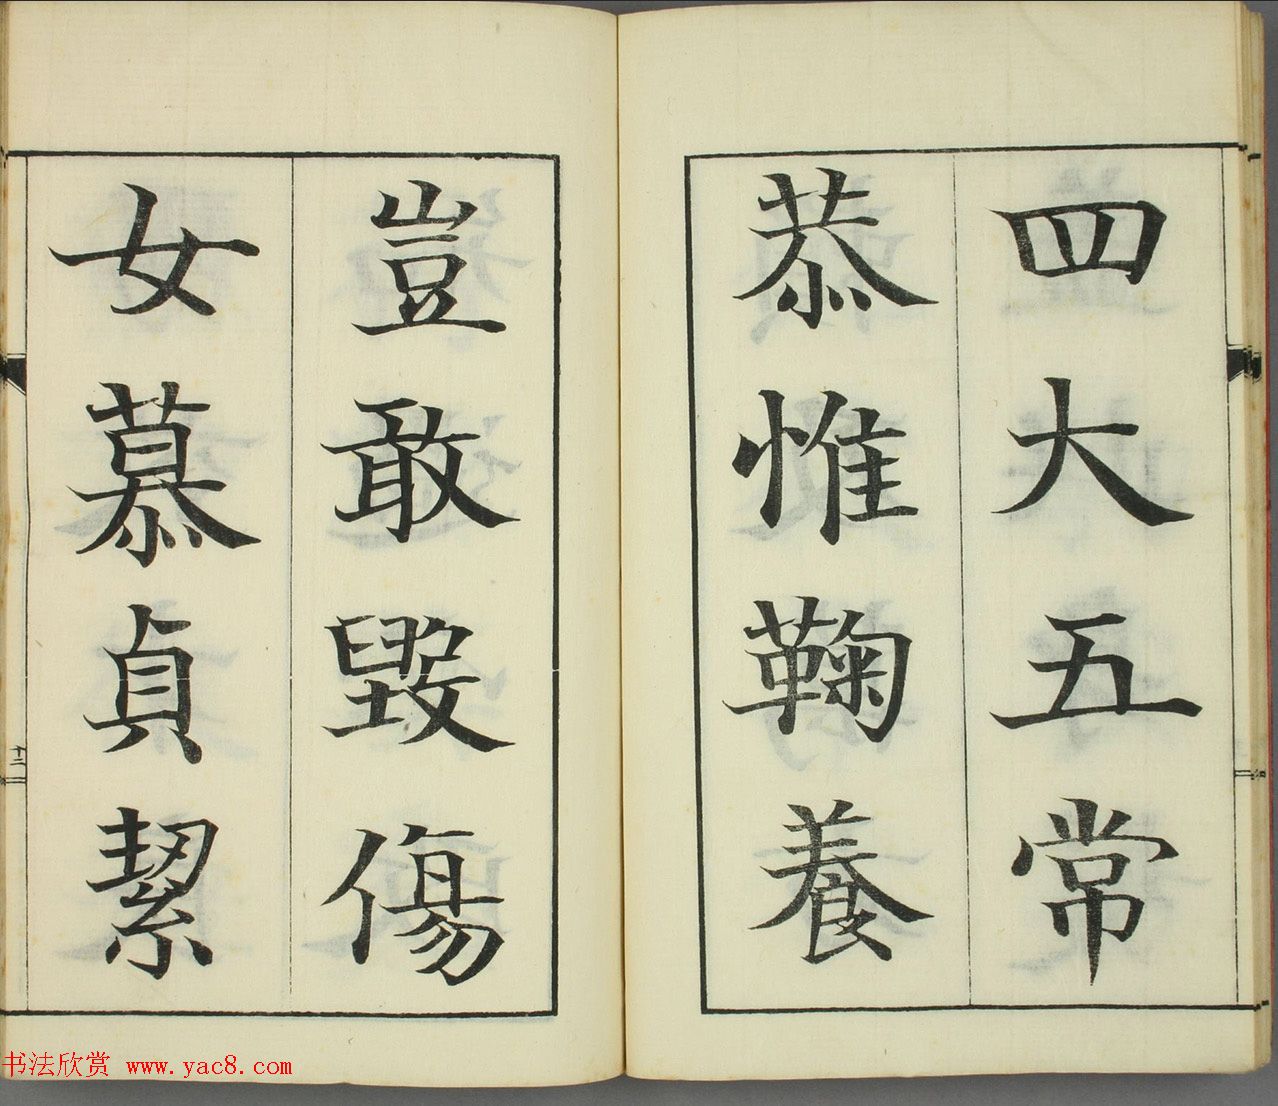 四大五常
恭惟鞠養
豈敢毀傷
女慕貞絜
十二
书法欣赏 www.yac8.com